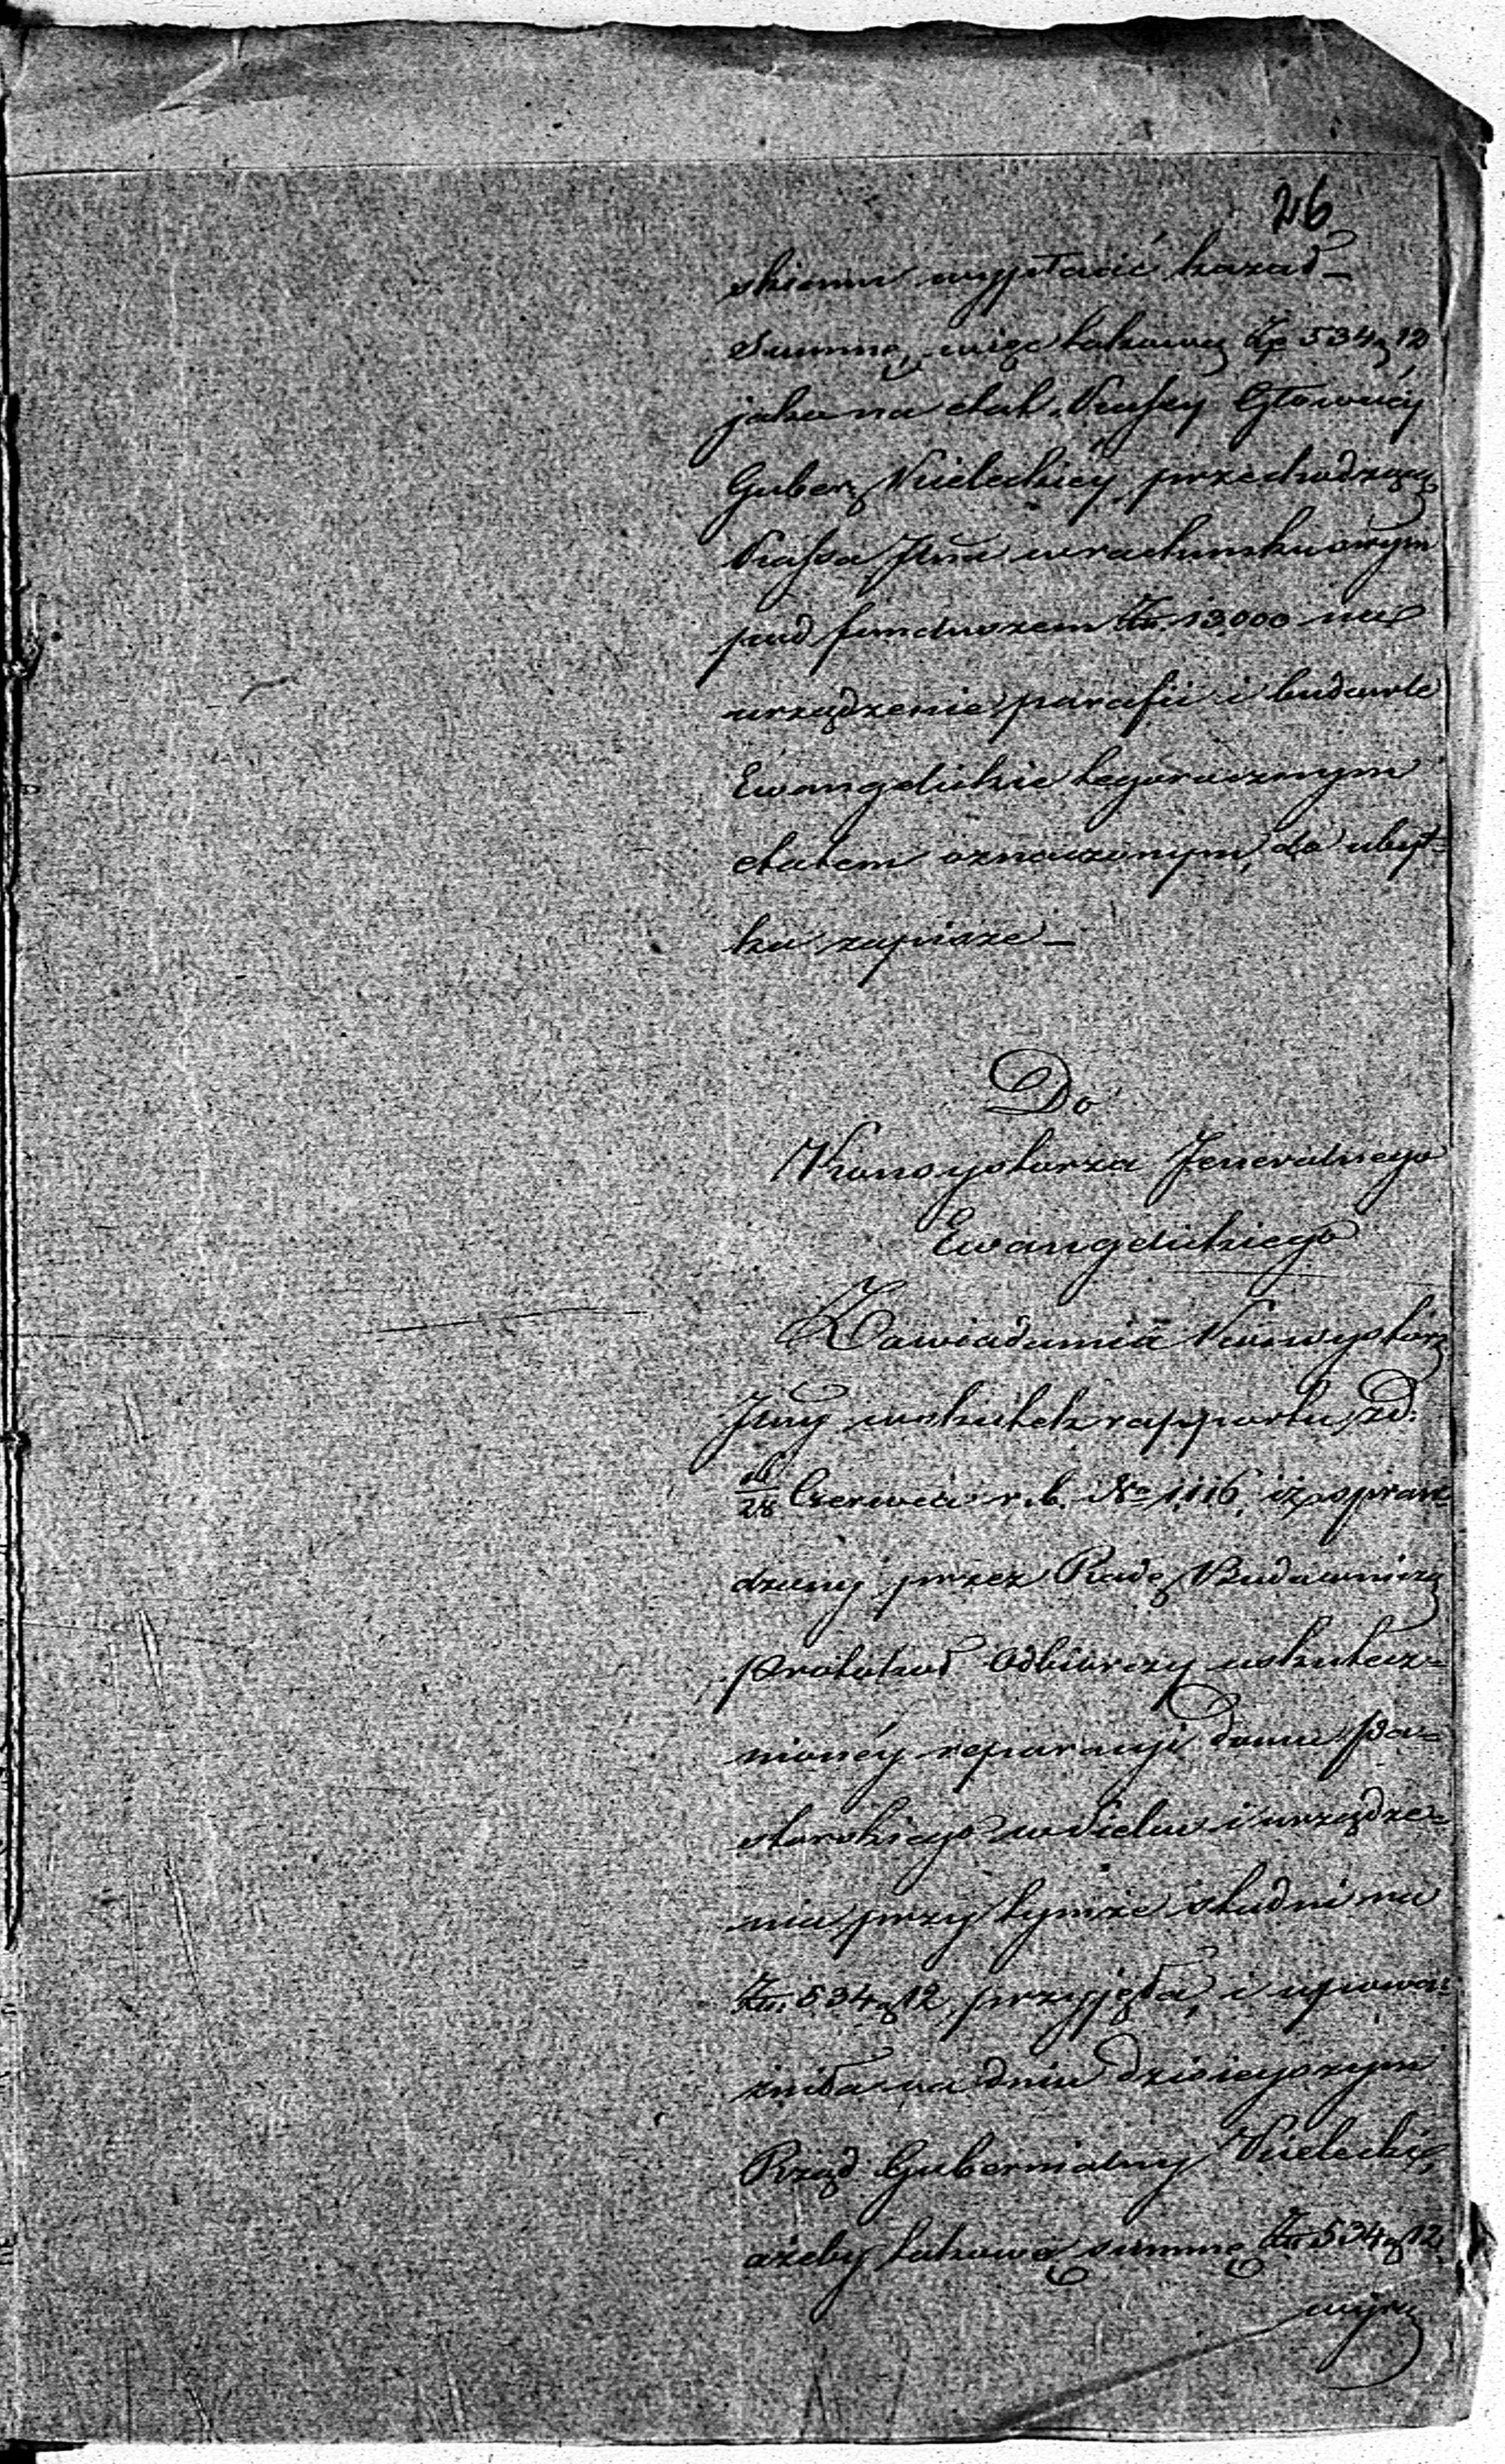 26
skiemu wypłacić kazał_
Summę, więc takową Zp 534 g 12
jako na etat Kassy Głównéj
Guber: Kieleckiéj przechodzącą
Kassa Jlna w rachunku swym
pod funduszem Złt 13.000 na
urządzenie parafii i budowle
Ewangelickie tegorocznym
etatem oznaczonym, do ubyt=
ku zapisze_
Do
Konsystorza Jeneralnego
Ewangelickiego
Zawiadamia Konsystorz
Jlny wskutek rapportu z d:
/28 Czerwca r. b. No 1116, iż spraw
dzony przez Radę Budowniczą
protokuł odbiorczy uskutecz=
nionéj reparacyi domu Pa=
storskiego w Sielcu i urządze=
nia przy tymże studni na
Złt. 534 g 12, przyjęła, i upowa:
żniła na dniu dzisieyszym
Rząd Gubernialny Kielecki,
ażeby takową summę Złt 534 g 12